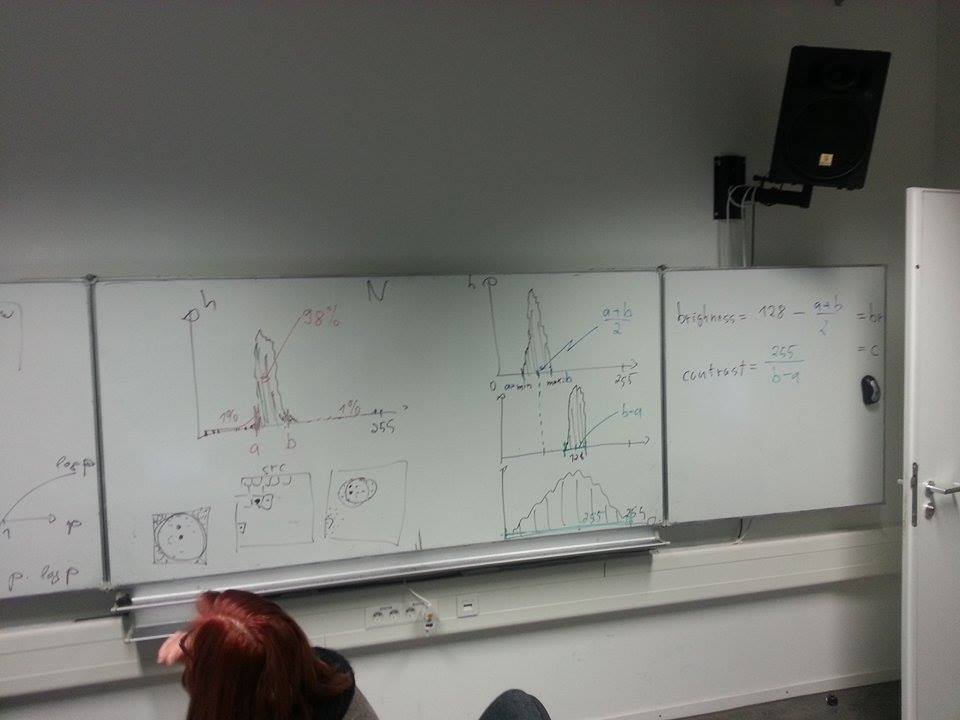 log p
1 p
p. log p
h N
98%
1% 1%
a b 255
src
h
a+b
2
0 a=min max=b 255
b-a
128
255
brightness = 128 - a+b = br
2
contrast = 255 = c
b-a